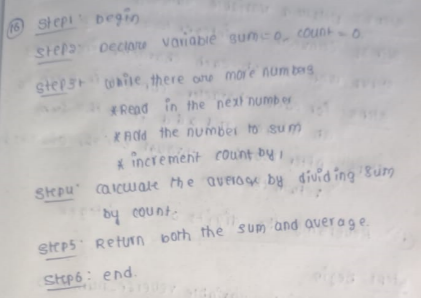 16) Step1: begin
Step2: Declare variable sum=0, count=0
Step3: while, there are more numbers
* Read in the next number
* Add the number to sum
* increment count by 1
Step4: calculate the average by dividing sum
by count.
Step5: Return both the sum and average
Step6: end.